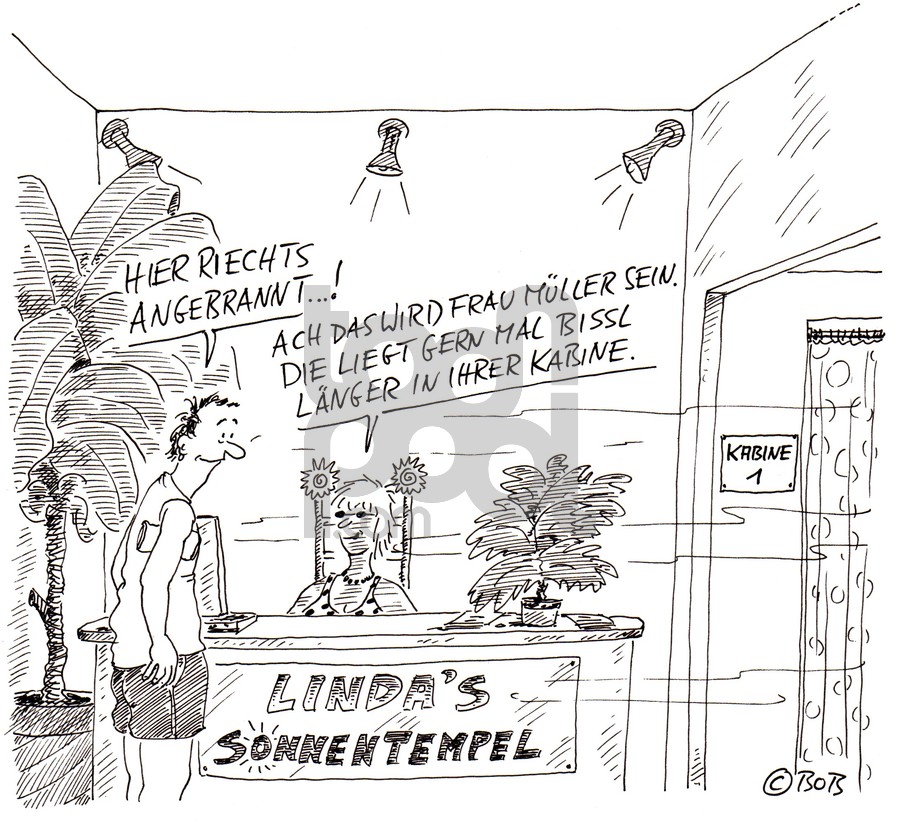 HIER RIECHTS
ANGEBRANNT...!
ACH DAS WIRD FRAU MÜLLER SEIN.
DIE LIEGT GERN MAL BISSL
LÄNGER IN IHRER KABINE.
toonpool.com
KABINE
1
LINDA'S
SONNENTEMPEL
© BOB